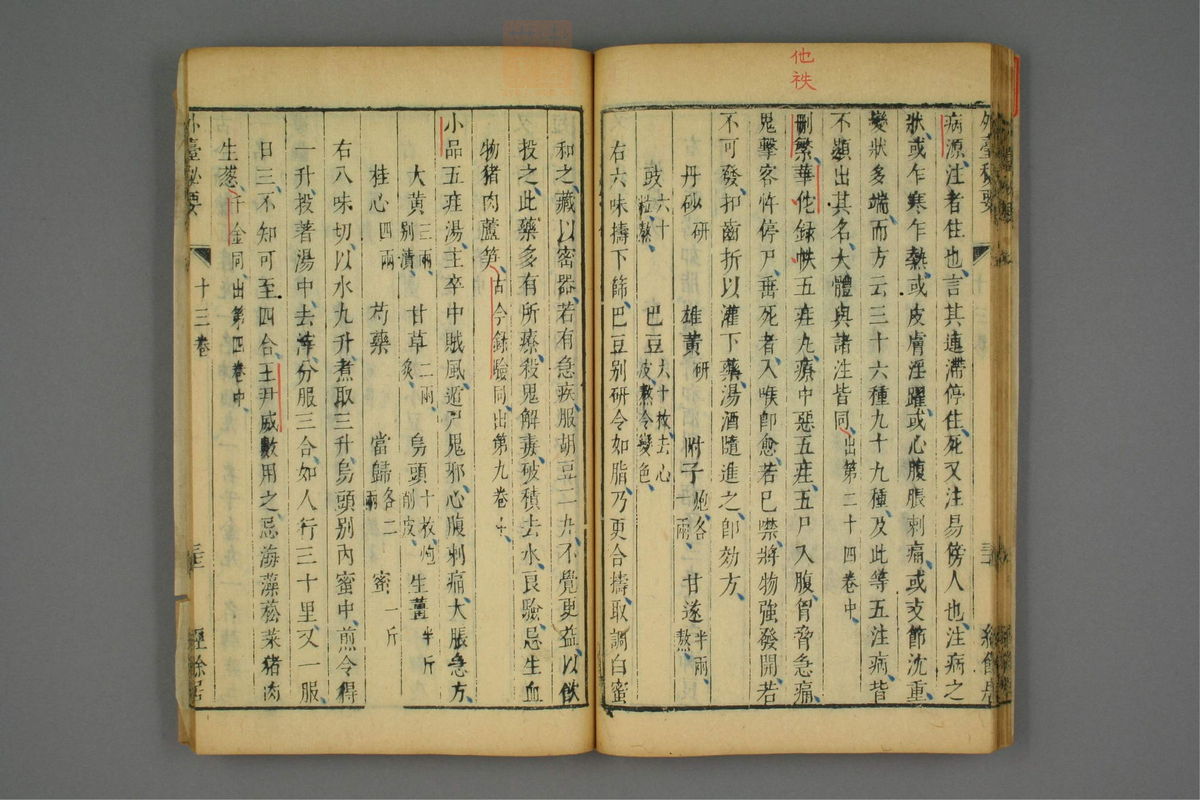 他祑
病源注者住也言其連滯停住死又注易傍人也注病之
狀或乍寒乍熱或皮膚淫躍或心腹脹刺痛或支節沈重
變狀多端而方云三十六種九十九種及此等五注病皆
不顯出其名大體與諸注皆同出第二十四卷中
刪繁華佗錄帙五疰丸療中惡五疰五尸入腹胷脅急痛
鬼擊客忤停尸垂死者入喉卽愈若巳噤將物強發開若
不可發扣齒折以灌下藥湯酒隨進之卽効方
丹砂研 雄黃研 附子炮各一兩 甘遂半兩熬
豉六十粒熬 巴豆六十枚去心皮熬令變色
右六味擣下篩巴豆别研令如脂乃更合擣取調白蜜
和之藏以密器若有急疾服胡豆二丸不覺更益以飲
投之此藥多有所療殺鬼解毒破積去水良驗忌生血
物猪肉蘆笋古今錄驗同出第九卷中
小品五疰湯主卒中賊風遁尸鬼邪心腹刺痛大脹急方
大黃三兩别漬 甘草二兩炙 烏頭十枚炮削皮 生薑半斤
桂心四兩 芍藥 當歸各二兩 蜜一斤
右八味切以水九升煮取三升烏頭别内蜜中煎令得
一升投著湯中去滓分服三合如人行三十里又一服
日三不知可至四合王尹威數用之忌海藻菘菜猪肉
生葱千金同出第四卷中
外臺秘要 十三卷 經餘居